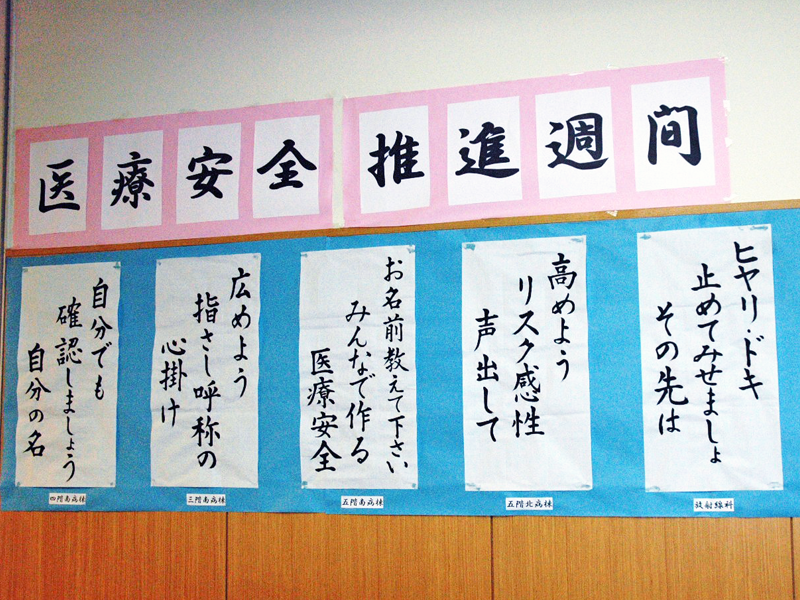 医療安全推進週間
ヒヤリ・ドキ
止めてみせましょ
その先は
放射線科
高めよう
リスク感性
声出して
五階北病棟
お名前教えて下さい
みんなで作る
医療安全
五階南病棟
広めよう
指さし呼称の
心掛け
三階南病棟
自分でも
確認しましょう
自分の名
四階南病棟